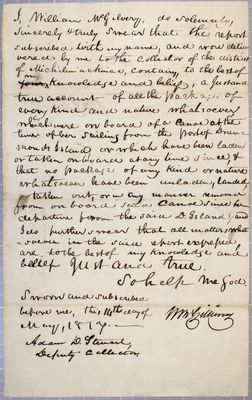 I, William McGilvery, do solemnly,
sincerely & truly swear that the report
subscribed with my name, and now deliv
ered by me to the Collector of the district
of Michilimackinac, contains, to the best of
my knowledge and belief, a just and
true account of all the packages of
every kind and nature whatsoever
which were on board of a Canoe at the
time of her sailing from the port of Drum
monds Island or which have been laden
or taken on board at any time since &
that no package of any kind or nature
whatsoever have been unladen, landed,
taken out, or in any manner removed
from on board said Canoe since her
departure from the said D. Island; and
I do further swear that all matters what
soever in the said report expressed
are to the best of my knowledge and
belief just and true.
So help me God
Sworn and subscribed
before me, this 14th day of
May, 1817.
Wm McGillivray
Adam D. Steuart,
Deputy Collector